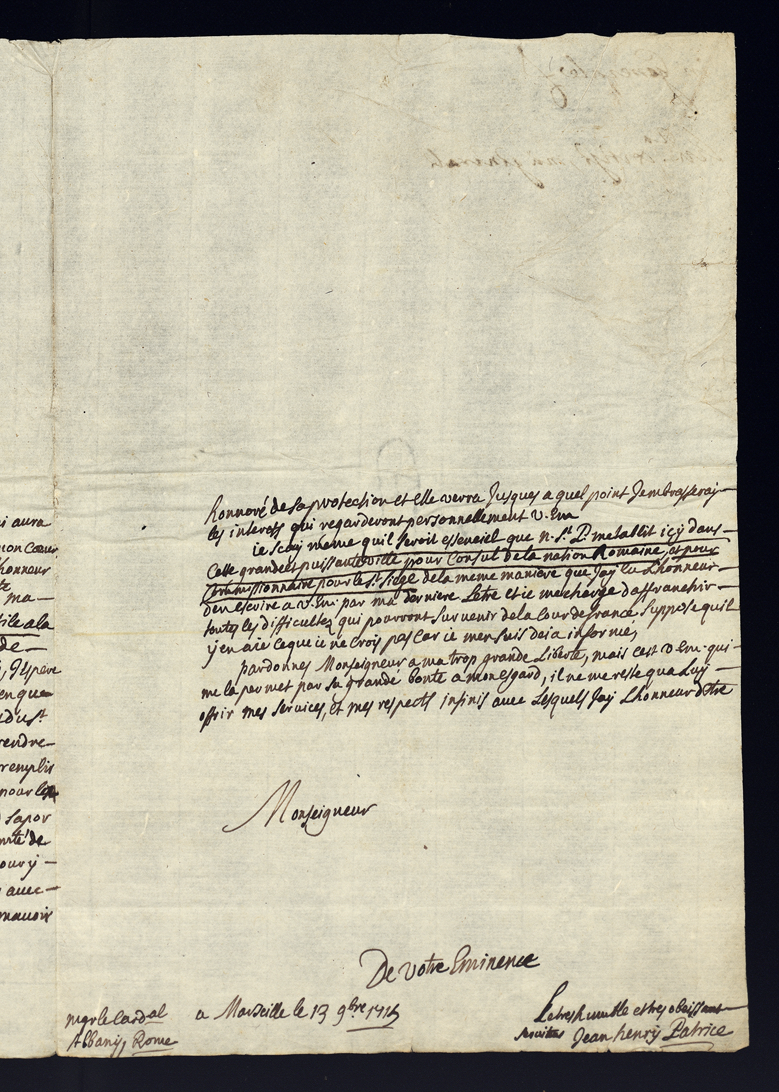 honnoré de sa protection et elle verra Jusques a quel point Jembrasseray
les interests qui regarderont personnellement V. Em
ie scay meme quil seroit essenciel que n. St. P. metablit icy dans
Cette grande et puissante ville pour Consul de la nation Romaine, et pour
Commissionnaire pour le St. Siege de la meme maniere que Jay eu Lhonneur
den escrire a V. Em. par ma derniere Letre et ie me charge daffranchir
toutes les difficultez qui pourront survenir de la Cour de france supposé quil
y en aie ce que ie ne crois pas car ie men suis deia informé,
pardonnes Monseigneur a ma trop grande Liberté, mais cest V. Em. qui
me la permet par sa grande bonté a mon esgard, il ne me reste qua Luy
offrir mes services, et mes respects infinis avec Lesquels Jay Lhonneur dEtre
Monseigneur
De Votre Eminence
a Marseille le 13 9bre
mgr le Cardal
Albany, Rome
Le tres humble et tres obeissant
Jean henry Patrice
i aura
mon Coeur
honneur
ma
tile a la
de
pere
en que
du St
rendre
remplir
pour les
sa por
de
avec
mavoir